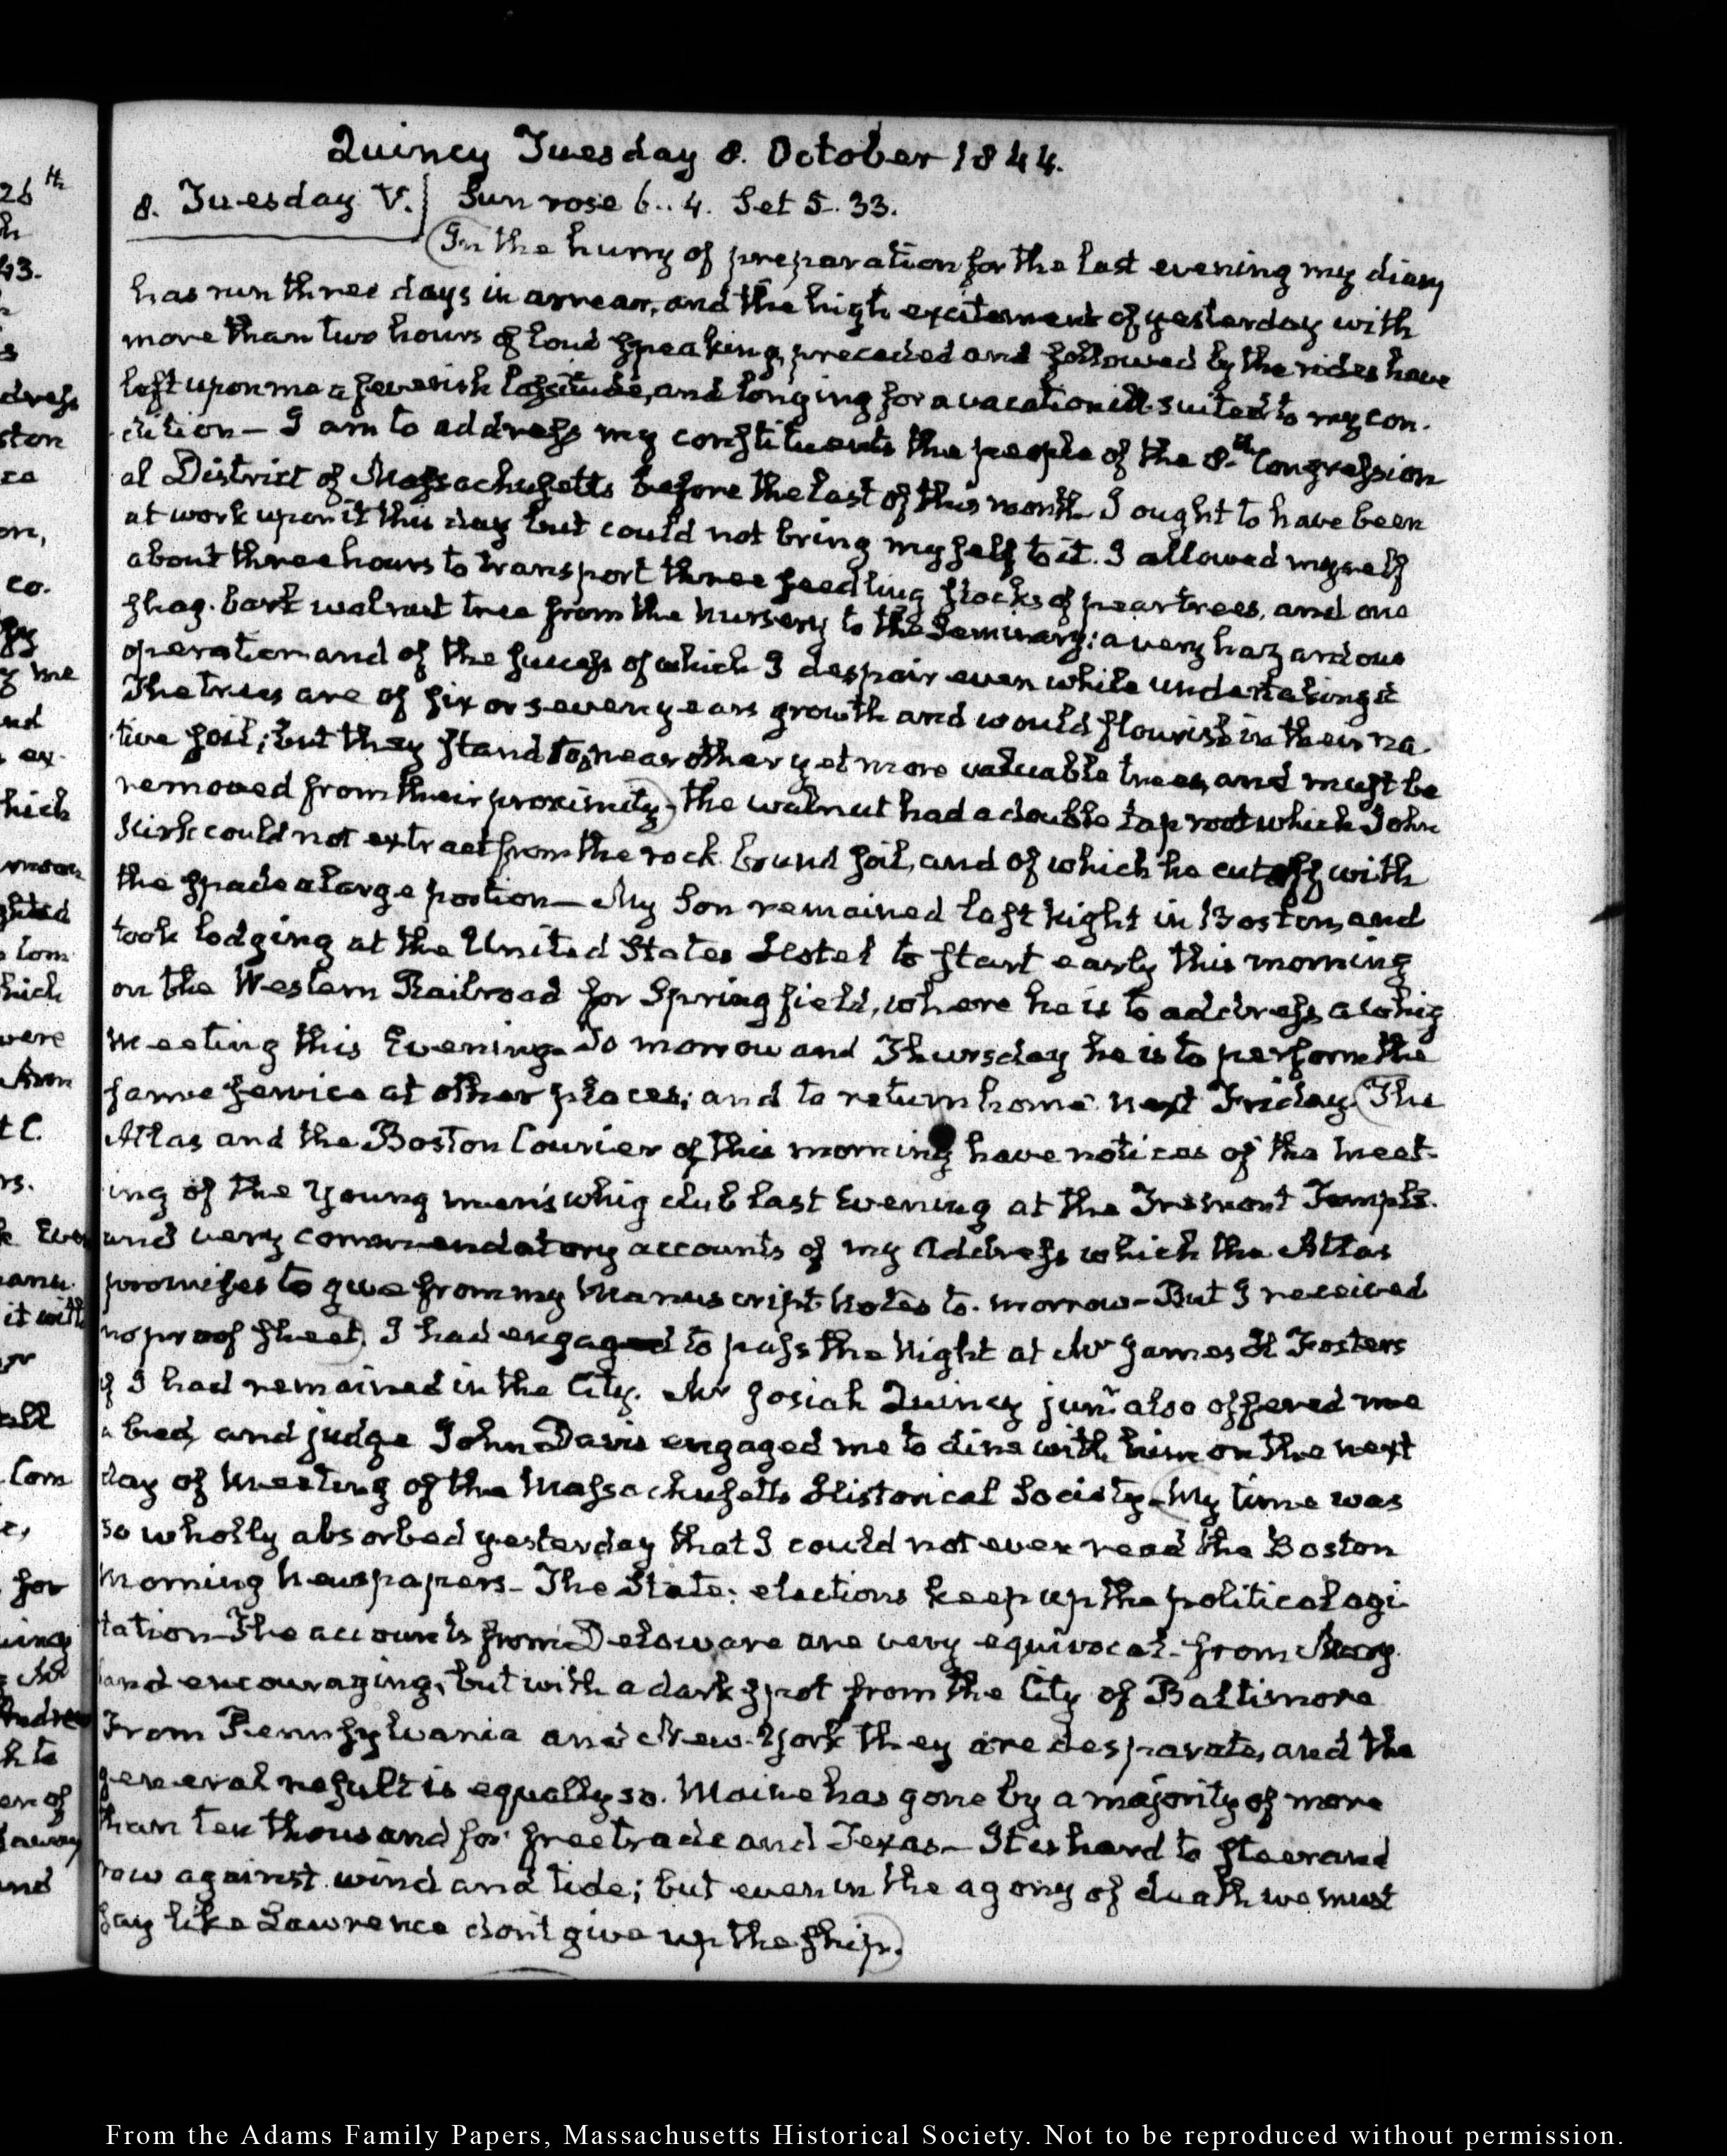 Quincy Tuesday 8. October 1844.
8. Tuesday V. Sun rose 6..4. Set 5.33.
In the hurry of preparation for the last evening my diary
has run three days in arrear, and the high excitement of yesterday with
more than two hours of loud speaking, preceded and followed by the rides have
left upon me a feverish lassitude, and longing for a vacation ill suited to my con-
dition — I am to address my constituents the people of the 8.th Congression
al District of Massachusetts before the last of this month. I ought to have been
at work upon it this day but could not bring myself to it. I allowed myself
about three hours to transport three seedling stocks of pear trees, and one
shag-bark walnut tree from the Nursery to the Seminary: a very hazardous
operation and of the success of which I despair even while undertaking it
The trees are of six or seven years growth and would flourish in their na-
tive soil; but they stand too near other yet more valuable trees, and must be
removed from their proximity, the walnut had a double tap root which John
Kirk could not extract from the rock bound soil, and of which he cut off with
the spade a large portion — My Son remained last Night in Boston, and
took lodging at the United States Hotel to start early this morning
on the Western Railroad for Springfield, where he is to address a whig
Meeting this Evening. To morrow and Thursday he is to perform the
same service at other places; and to return home next Friday. The
Atlas and the Boston Courier of this morning have notices of the meet-
ing of the Young men's whig club last Evening at the Tremont Temple.
and very commendatory accounts of my Address which the Atlas
promises to give from my Manuscript Notes to-morrow — But I received
no proof sheet. I had engaged to pass the Night at Mr James H Fosters
if I had remained in the City. Mr Josiah Quincy junr. also offered me
a bed, and judge John Davis engaged me to dine with him on the next
day of Meeting of the Massachusetts Historical Society. My time was
so wholly absorbed yesterday that I could not even read the Boston
Morning Newspapers — The State: elections keep up the political agi-
tation — The accounts from Delaware are very equivocal — from Mary-
land encouraging, but with a dark spot from the City of Baltimore
From Pennsylvania and New-York they are desparate, and the
general result is equally so. Maine has gone by a majority of more
than ten thousand for free trade and Texas — It is hard to steer and
row against wind and tide; but even in the agony of death we must
say like Lawrence don't give up the ship.
From the Adams Family Papers, Massachusetts Historical Society. Not to be reproduced without permission.